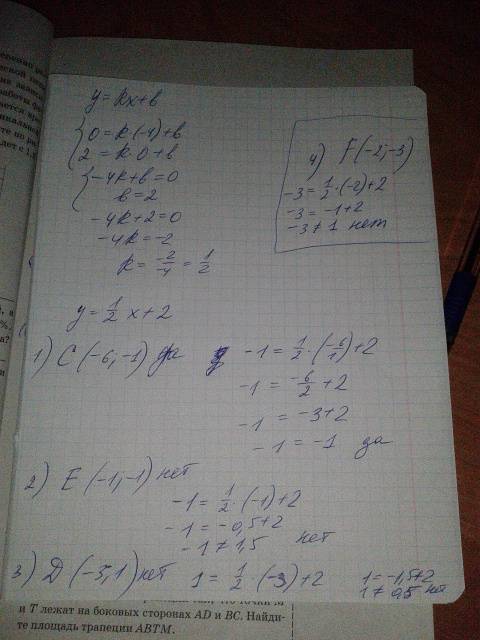 y=kx+b
0=k(-4)+b
2=k·0+b
-4k+b=0
b=2
-4k+2=0
-4k=-2
k=-2/-4=1/2
y=1/2x+2
4) F(-2;-3)
-3=1/2·(-2)+2
-3=-1+2
-3≠1 нет
1) C(-6,-1) да
-1=1/2·(-6/1)+2
-1=-6/2+2
-1=-3+2
-1=-1 да
2) E(-1,-1) нет
-1=1/2·(-1)+2
-1=-0,5+2
-1≠1,5 нет
3) D(-3,1) нет 1=1/2·(-3)+2
1=-1,5+2
1≠0,5 нет
и T лежат на боковых сторонах AD и BC. Найди-
те площадь трапеции ABTM.